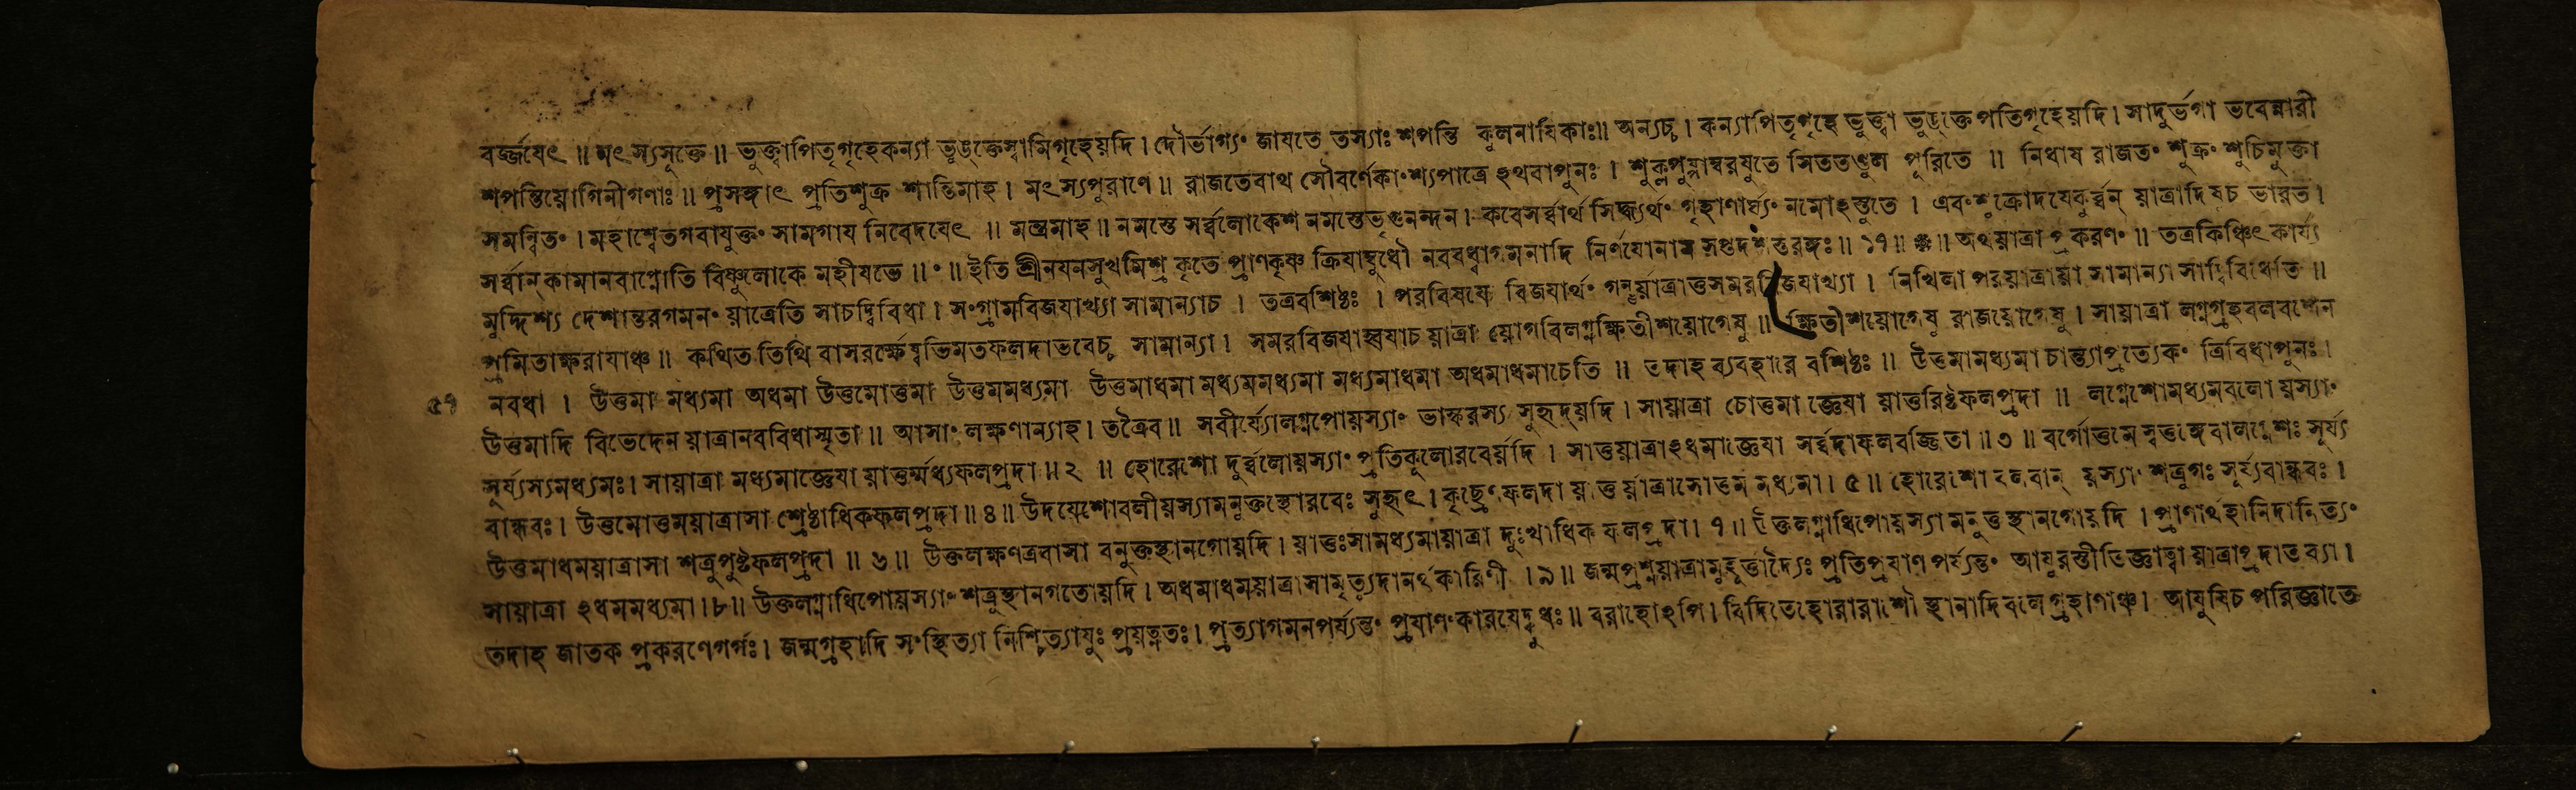 বর্জ্জযেৎ ॥ মৎস্যসূক্তে ॥ ভুক্ত্বাপিতৃগৃহেকন্যা ভুঙক্তেস্বামিগৃহেয়দি । দৌর্ভাগ্যং জাযতে তস্যাঃ শপন্তি কুলনাযিকাঃ॥ অন্যচ্চ । কন্যাপিতৃগৃহে ভুক্ত্বা ভুঙক্তেপতিগৃহেয়দি । সাদুর্ভগা ভবেন্নারী
শপন্তিয়োগিনীগণাঃ ॥ প্রসঙ্গাৎ প্রতিশুক্র শান্তিমাহ । মৎস্যপুরাণে ॥ রাজতেবাথ সৌবর্ণেকাংশ্যপাত্রে হথবাপুনঃ । শুক্লপুষ্পাম্বরযুতে সিততণ্ডুল পূরিতে ॥ নিধায রাজতং শুক্রং শুচিমুক্তা
সমন্বিতং । মহাশ্বেতগবাযুক্তং সামগায নিবেদযেৎ ॥ মন্ত্রমাহ ॥ নমস্তে সর্ব্বলোকেশ নমস্তেভৃগুনন্দন । কবেসর্ব্বার্থ সিদ্ধ্যর্থং গৃহাণার্ঘ্যং নমোহস্তুতে । এবংশুক্রোদযেকুর্ব্বন্ য়াত্রাদিষচ ভারত ।
সর্ব্বান্ কামানবাপ্নোতি বিষ্ণুলোকে মহীযতে ॥ ॰ ॥ ইতি শ্রীনযনসুখমিশ্র কৃতে প্রাণকৃষ্ণ ক্রিযাম্বুধৌ নববধ্বাগমনাদি নির্ণযোনাম সপ্তদশস্তরঙ্গঃ ॥ ১৭ ॥ ॥ অথয়াত্রাপ্রকরণং ॥ তত্রকিঞ্চিৎ কার্য্য
মুদ্দিশ্য দেশান্তরগমনং য়াত্রেতি সাচদ্বিবিধা । সংগ্রামবিজযাখ্যা সামান্যাচ । তত্রবশিষ্ঠঃ । পরবিষযে বিজযার্থং গন্তুর্য়াত্রাত্তসমরবিজযাখ্যা । নিখিলা পরয়াত্রায়া সামান্যা সাদ্বিবিধেতি ॥
প্রমিতাক্ষরাযাঞ্চ ॥ কথিত তিথি বাসরর্ক্ষেষ্বভিমতফলদাভবেচ্চ সামান্যা । সমরবিজযাহ্বযাচ য়াত্রা য়োগবিলগ্নক্ষিতীশয়োগেষু ॥ ক্ষিতীশয়োগেষু রাজয়োগেষু । সায়াত্রা লগ্নগ্রহবলবশেন
৫৭ নবধা । উত্তমা মধ্যমা অধমা উত্তমোত্তমা উত্তমমধ্যমা উত্তমাধমা মধ্যমমধ্যমা মধ্যমাধমা অধমাধমাচেতি ॥ তদাহ ব্যবহারে বশিষ্ঠঃ ॥ উত্তমামধ্যমা চান্ত্যাপ্রত্যেকং ত্রিবিধাপুনঃ ।
উত্তমাদি বিভেদেন য়াত্রানববিধাস্মৃতা ॥ আসাং লক্ষণান্যাহ । তত্রৈব ॥ সবীর্য্যোলগ্নপোয়স্যাং ভাস্করস্য সুহৃদ্য়দি । সায়াত্রা চোত্তমা জ্ঞেযা য়াত্তরিষ্টফলপ্রদা ॥ লগ্নেশোমধ্যমবলো য়স্যাং
সূর্য্যস্যমধ্যমঃ । সায়াত্রা মধ্যমাজ্ঞেযা য়াত্তুর্ম্মধ্যফলপ্রদা ॥ ২ ॥ হোরেশো দুর্ব্বলোয়স্যাং প্রতিকুলোরবের্য়দি । সাত্তয়াত্রাহধমাজ্ঞেযা সর্ব্বদাফলবর্জ্জিতা ॥ ৩ ॥ বর্গোত্তমে স্বতুঙ্গেবালগ্নেশঃ সূর্য্য
বান্ধবঃ । উত্তমোত্তময়াত্রাসা শ্রেষ্ঠাধিকফলপ্রদা ॥ ৪ ॥ উদযেশোবলীয়স্যামনুক্তস্থোরবেঃ সুহৃৎ । কৃচ্ছ্রেণফলদা য়াত্তু র্য়াত্রাসোত্তম মধ্যমা । ৫ ॥ হোরেশো বলবান্ য়স্যাং শত্রুগঃ সূর্য্যবান্ধবঃ ।
উত্তমাধময়াত্রাসা শত্রুপুষ্টফলপ্রদা ॥ ৬ ॥ উক্তলক্ষণত্রবাসা বনুক্তস্থানগোয়দি । য়াত্তুঃসামধ্যমায়াত্রা দুঃখাধিক ফলপ্রদা । ৭ ॥ উক্তলগ্নাধিপোয়স্যামনুক্ত স্থানগোয়দি । প্রাণার্থহানিদানিত্যং
সায়াত্রা হধমমধ্যমা । ৮ ॥ উক্তলগ্নাধিপোয়স্যাং শত্রুস্থানগতোয়দি । অধমাধময়াত্রাসামৃত্যুদানর্থকারিণী । ৯ ॥ জন্মপ্রশ্নয়াত্রামুহূর্ত্তাদ্যৈঃ প্রতিপ্রযাণ পর্য্যন্তং আযুরস্তীতিজ্ঞাত্বা য়াত্রাপ্রদাতব্যা ।
তদাহ জাতক প্রকরণেগর্গঃ । জন্মগ্রহাদি সংস্থিত্যা নিশ্চিত্যাযুঃ প্রয়ত্নতঃ । প্রত্যাগমনপর্য্যন্তং প্রযাণংকারযেদ্বুধঃ ॥ বরাহোহপি । বিদিতেহোরারাশৌ স্থানাদিবলেগ্রহাণাঞ্চ । আযুষিচ পরিজ্ঞাতে